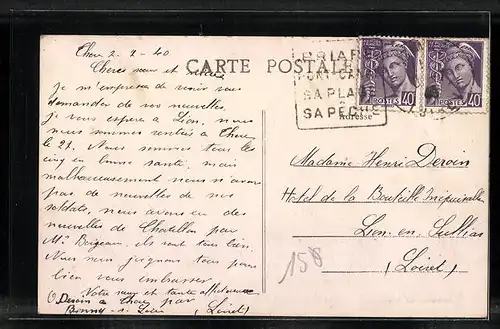 Thou 2-2-40
CARTE POSTALE
Chères sœur et nièce
je m'empresse de venir vous
demander de vos nouvelles.
je vous espère à Lion, nous
nous sommes rentrés à Thou
le 21. Nous sommes tous les
cinq en bonne santé, mais
malheureusement nous n'avons
pas de nouvelles de nos
soldats, nous avons eu des
nouvelles de Chatillon par
Mr ils sont tous bien.
Nous nous joignons tous pour
bien vous embrasser
Votre sœur et tante affectueuse
Deroin à Thou par
Bonny-s-Loire (Loiret)
BRIARE
PONT CANAL
SA PLAGE
SA PÊCHE
POSTES 40
POSTES 40
Adresse
Madame Henri Deroin
Hôtel de la Bouteille Inépuisable
Lion-en-Sullias
(Loiret)
158